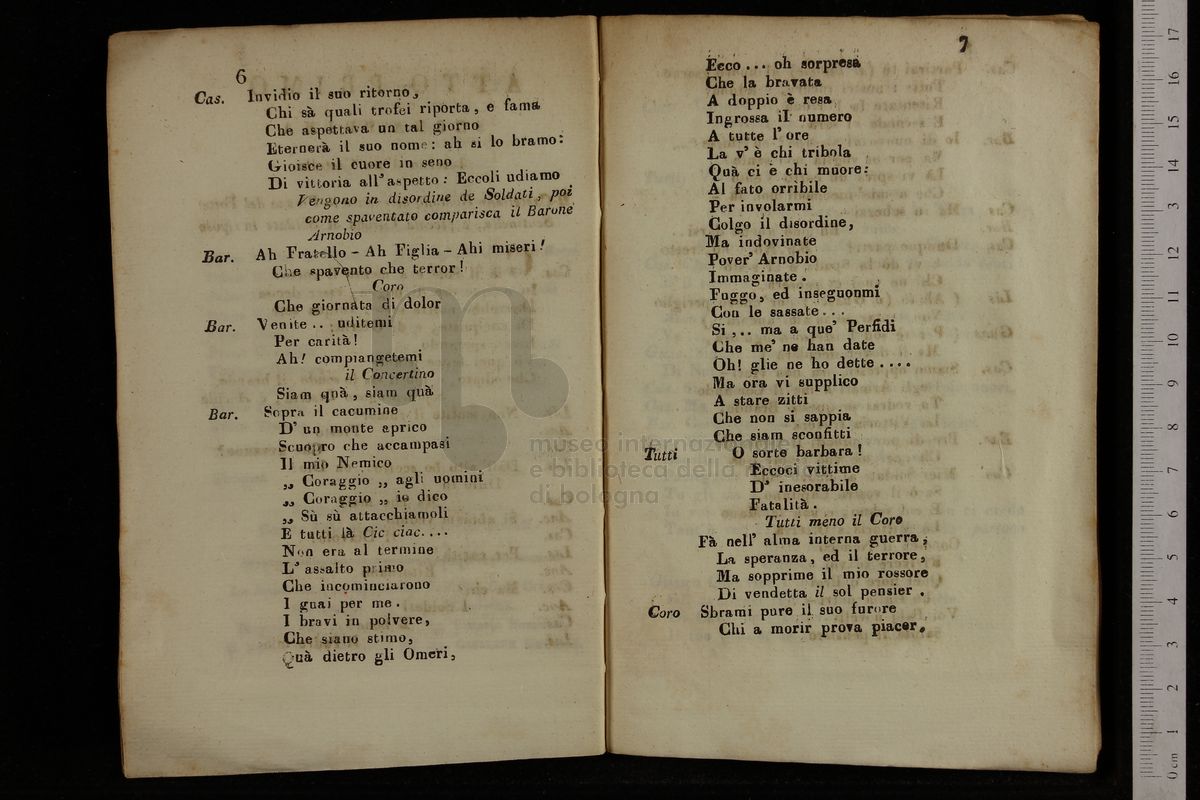 6
Cas. Invidio il suo ritorno,
Chi sà quali trofei riporta, e fama
Che aspettava un tal giorno
Eternerà il suo nome: ah si lo bramo:
Gioisce il cuore in seno
Di vittoria all'aspetto: Eccoli udiamo
Vengono in disordine de Soldati, poi
come spaventato comparisca il Barone
Arnobio
Bar. Ah Fratello - Ah Figlia - Ahi miseri!
Che spavento che terror!
Coro
Che giornata di dolor
Bar. Venite .. uditemi
Per carità!
Ah! compiangetemi
il Concertino
Siam quà, siam quà
Bar. Sopra il cacumine
D' un monte aprico
Scuopro che accampasi
Il mio Nemico
„ Coraggio „ agli uomini
„ Coraggio „ io dico
„ Sù sù attacchiamoli
E tutti là Cic ciac....
Non era al termine
L' assalto primo
Che incominciarono
I guai per me.
I bravi in polvere,
Che siano stimo,
Quà dietro gli Omeri,
7
Ecco ... oh sorpresa
Che la bravata
A doppio è resa
Ingrossa il numero
A tutte l' ore
La v' è chi tribola
Quà ci è chi muore:
Al fato orribile
Per involarmi
Colgo il disordine,
Ma indovinate
Pover' Arnobio
Immaginate.
Fuggo, ed inseguonmi
Con le sassate...
Si ,.. ma a que' Perfidi
Che me' ne han date
Oh! glie ne ho dette ....
Ma ora vi supplico
A stare zitti
Che non si sappia
Che siam sconfitti
Tutti O sorte barbara!
Eccoci vittime
D' inesorabile
Fatalità.
Tutti meno il Coro
Fà nell' alma interna guerra,
La speranza, ed il terrore,
Ma sopprime il mio rossore
Di vendetta il sol pensier.
Coro Sbrami pure il suo furore
Chi a morir prova piacer.
museo internazionale
e biblioteca della
di bologna
17
16
15
14
13
12
11
10
9
8
7
6
5
4
3
2
1
0 cm